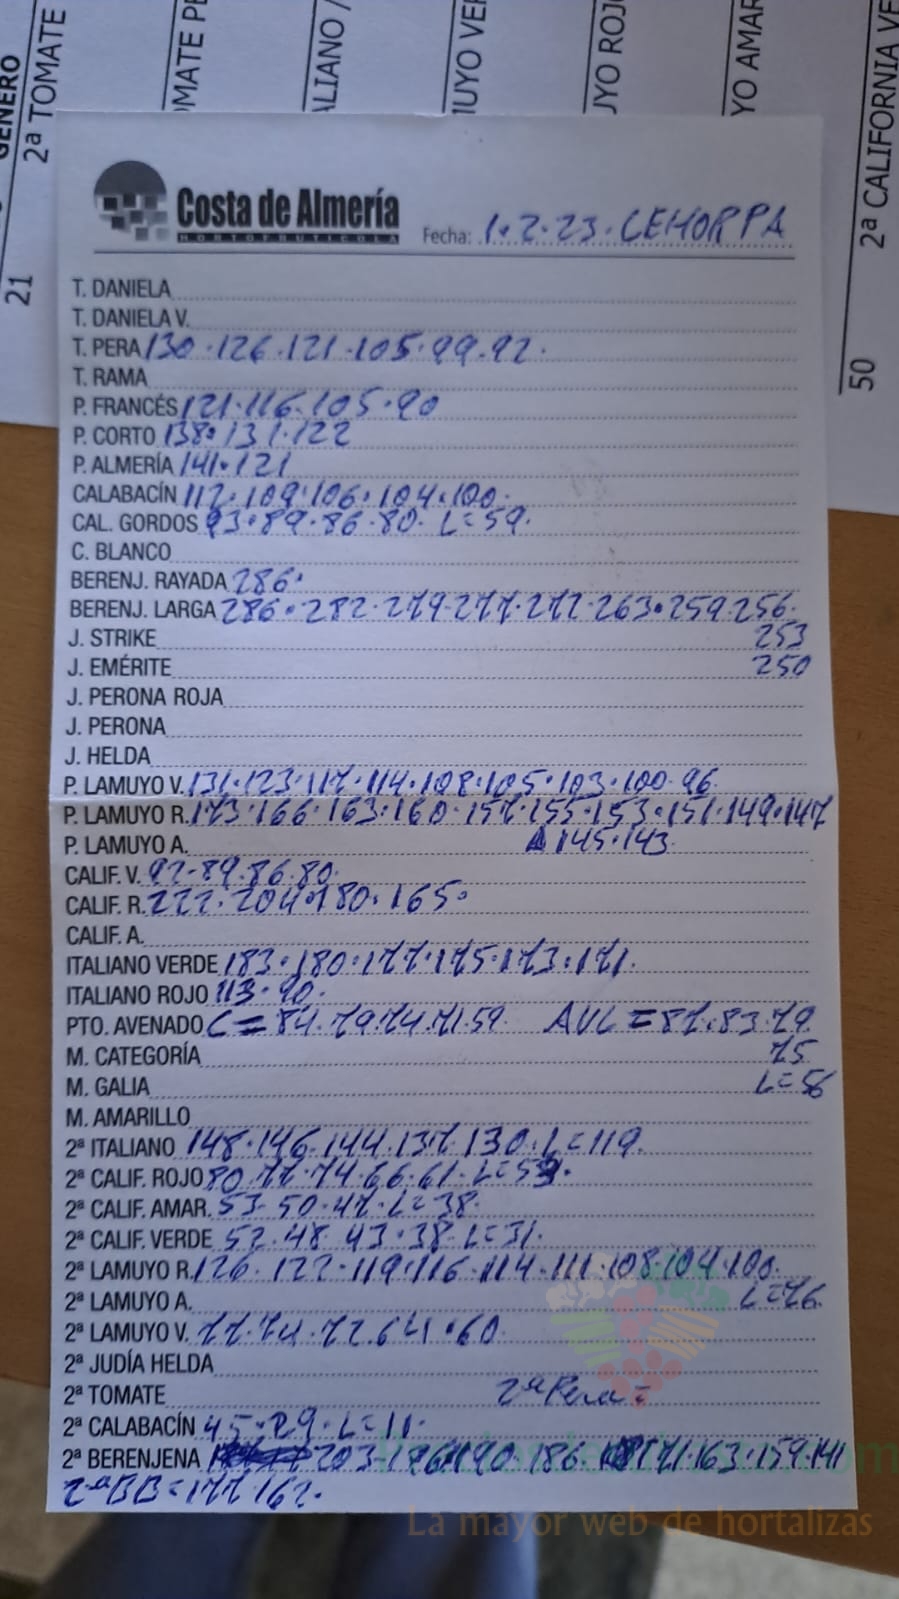 GENERO
2ª TOMATE
OMATE PE
ALIANO /
UYO ROJO
YO AMAR
2ª CALIFORNIA VE
21
50
Costa de Almería
HORTOFRUTICOLA
Fecha: 1.2.23. CEHORPA
T. DANIELA
T. DANIELA V.
T. PERA 130.126.121.105.99.92.
T. RAMA
P. FRANCÉS 121.116.105.90
P. CORTO 138.131.122
P. ALMERÍA 141.121
CALABACÍN 112.109.106.104.100.
CAL. GORDOS 93.89.86.80. L=59.
C. BLANCO
BERENJ. RAYADA 286.
BERENJ. LARGA 286.282.279.277.272.263.259 256.
J. STRIKE 253
J. EMÉRITE 250
J. PERONA ROJA
J. PERONA
J. HELDA
P. LAMUYO V. 131.123.117.114.108.105.103.100.96
P. LAMUYO R. 173.166.163.160.157.155.153.151.149.147
P. LAMUYO A. 145.143
CALIF. V. 92.89.86.80.
CALIF. R. 222.204.180.165.
CALIF. A.
ITALIANO VERDE 183.180.177.175.173.171.
ITALIANO ROJO 113.90.
PTO. AVENADO C=84.79.74.71 59 AVL=87.83.79
M. CATEGORÍA 75
M. GALIA L=56
M. AMARILLO
2ª ITALIANO 148.146.144.137.130.L=119.
2ª CALIF. ROJO 80.77.74.66.61.
2ª CALIF. AMAR. 53.50.47.L=38.
2ª CALIF. VERDE 52.48.43.38.L=31.
2ª LAMUYO R. 126.122.119.116.114.111.108.104.100.
2ª LAMUYO A. L=76.
2ª LAMUYO V. 77.74.72.64.60.
2ª JUDÍA HELDA
2ª TOMATE 2ª Pera=
2ª CALABACÍN 45.29.L=11.
2ª BERENJENA 203 190.186 171.163.159.141
2ªBB=177.162.
La mayor web de hortalizas